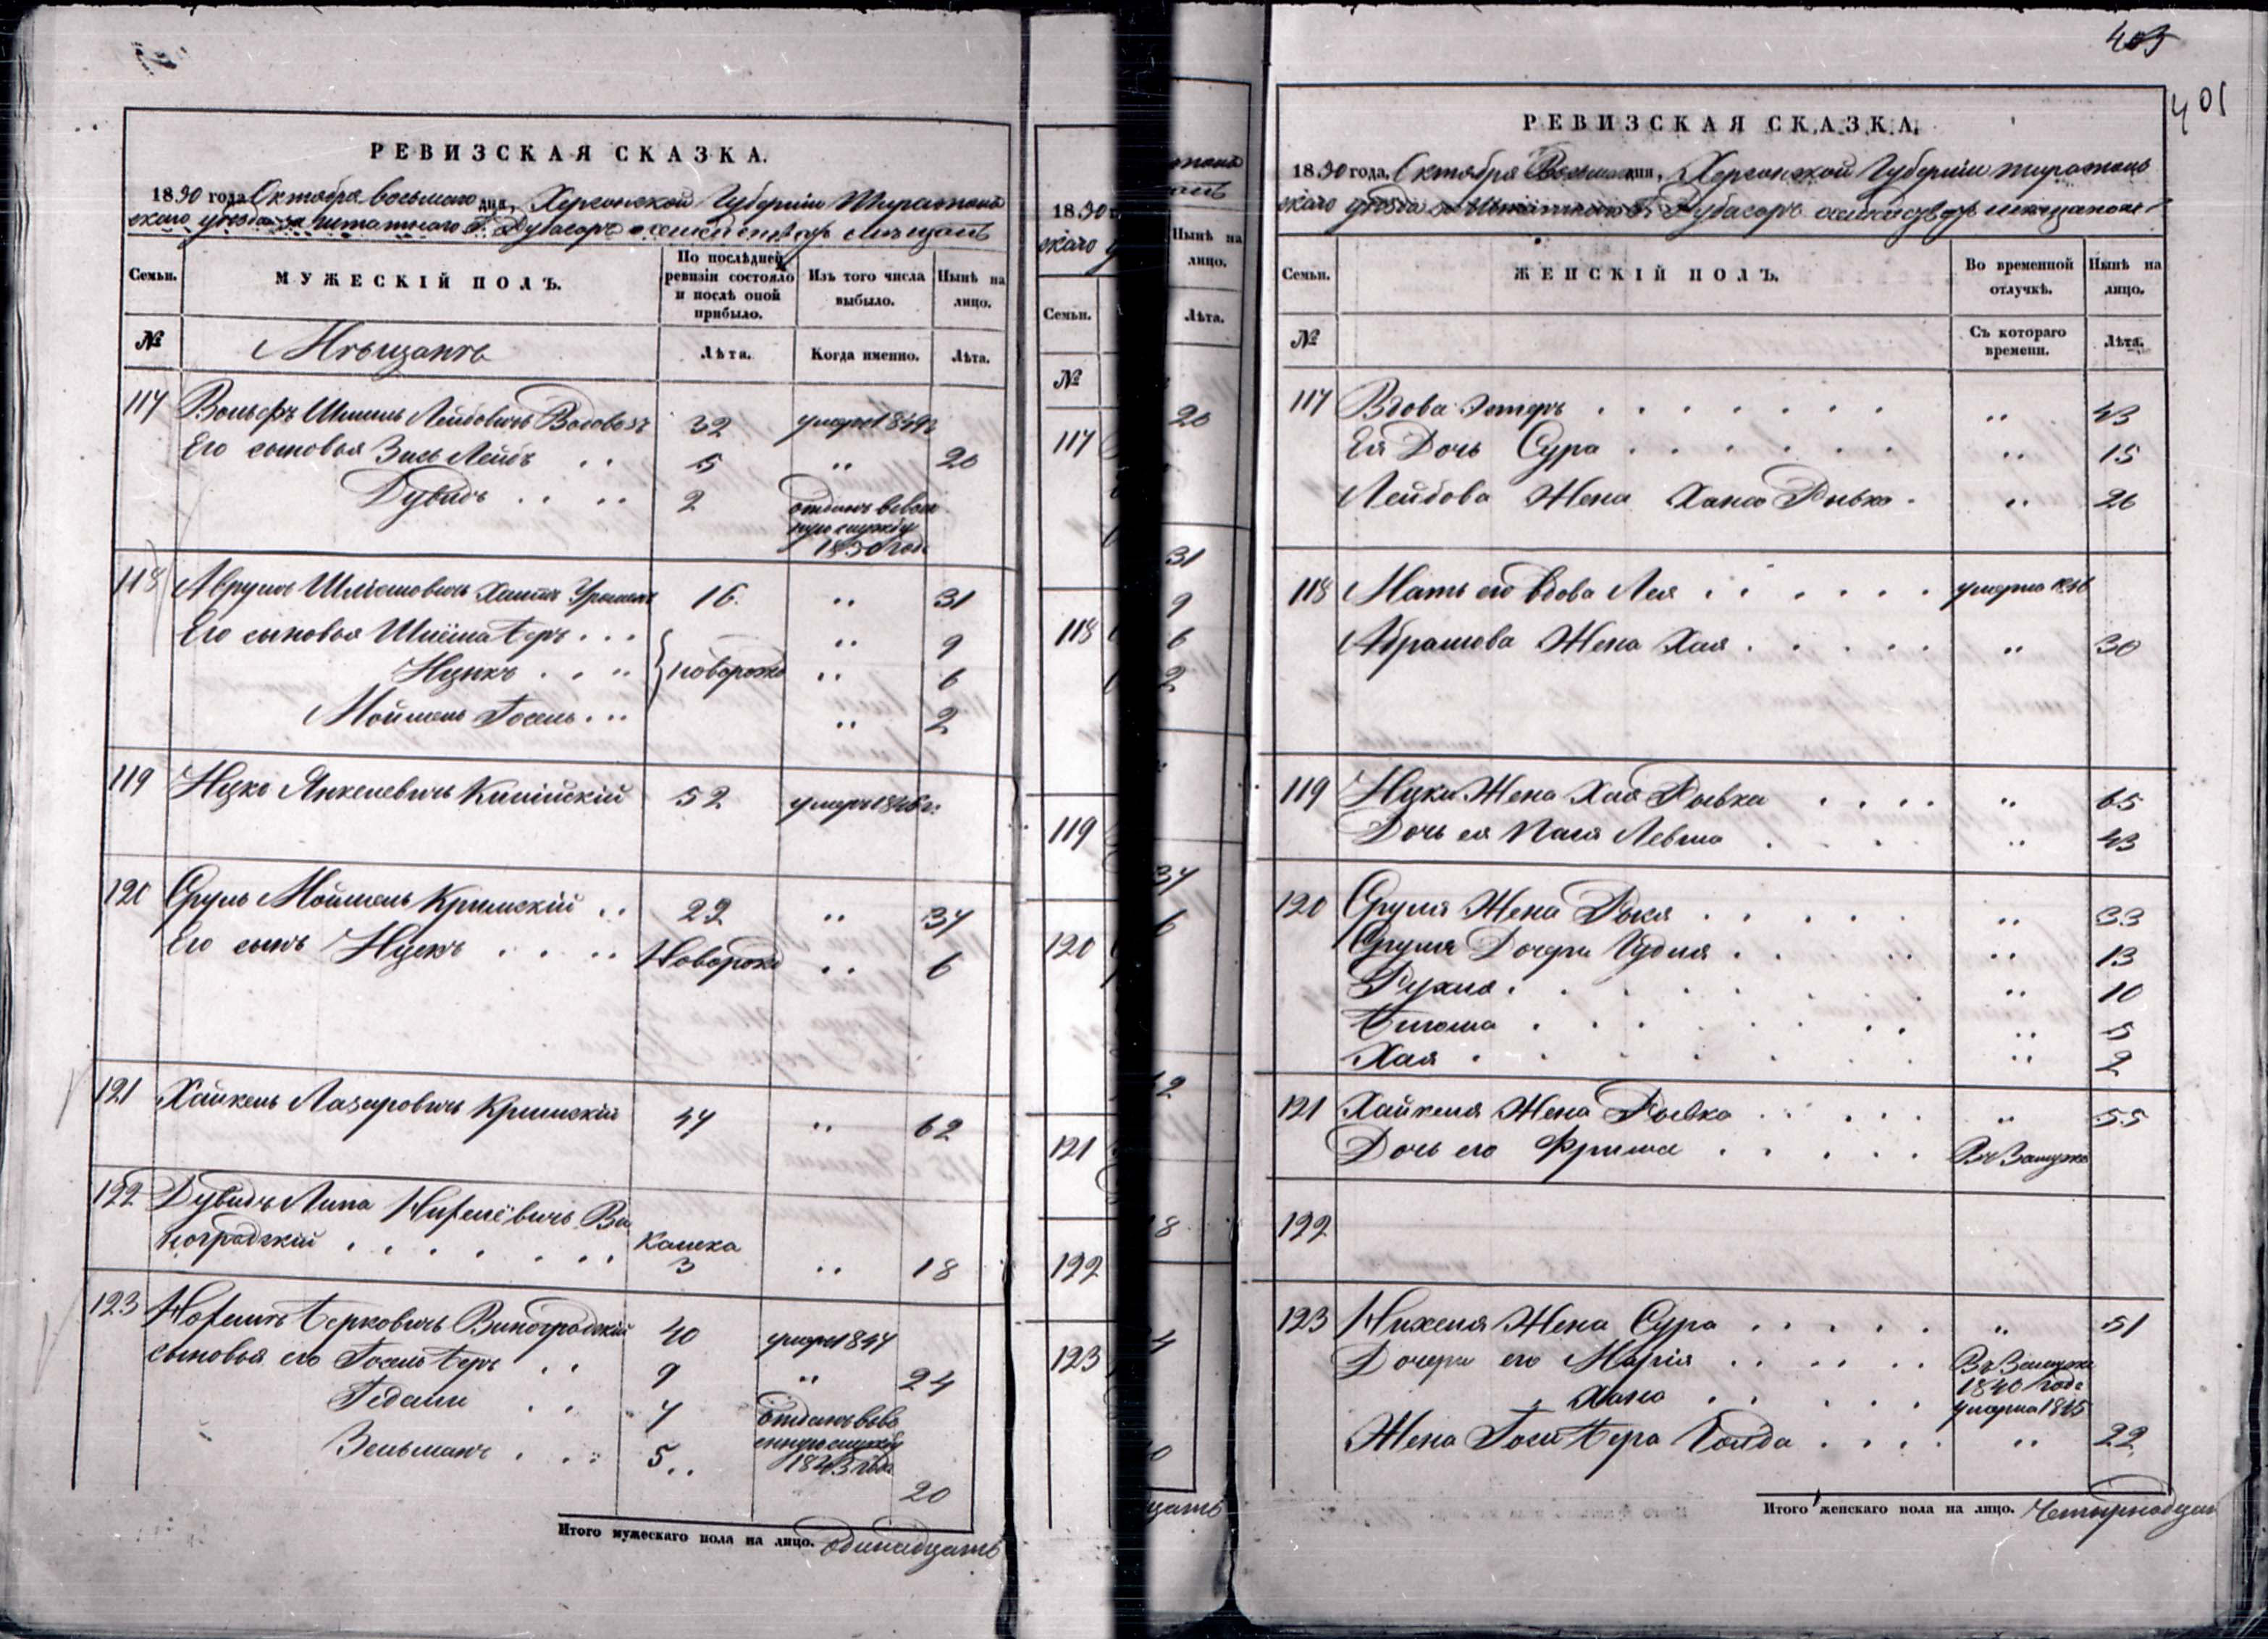 РЕВИЗСКАЯ СКАЗКА.
1850 года Октября восьмого дня, Херсонской Губерніи Тираспол
скаго уѣзда заштатнаго Г. Дубасаръ о мѣщанъ
Семьи.
МУЖЕСКІЙ ПОЛЪ.
По послѣдней ревизіи состояло и послѣ оной прибыло.
Изъ того числа выбыло.
Нынѣ на лицо.
№
Мѣщанъ
Лѣта.
Когда именно.
Лѣта.
117 Вольфъ Шмиль Лейбовичъ Водовозъ 32 умеръ 1849г
Его сыновья Зись Лейбъ .. 5 " 20
Дувидъ .. .. 2 отданъ ввоен
ную службу
1850 год
118 Аврумъ Шліомовичъ 16 " 31
Его сыновья Шлёма Беръ ... " 9
Ицикъ . . " новорожд " 6
Мошель Іосель ... " 2
119 Ицко Янкелевичъ Килійскій 52 умеръ 1846г.
120 Сруль Мойшель Кримскій .. 22 " 37
Его сынъ Ицикъ . . . .. Новорожд .. 6
121 Хайкель Лазаровичъ Кримскій 47 " 62
122 Дувидъ Липа Ви
ноградскій . . . . . . . 3 " 18
123 Берковичъ Виноградскій 40 умеръ 1847
сыновья его Іосель Беръ . . 9 " 24
Гедали . . 7 отданъ вово
енную службу
1843 года
Зельманъ . . .. 5 .. 20
Итого мужескаго пола на лицо. одинадцать
1850
скаго
Семьи.
№
117
118
119
120
121
122
123
Нынѣ на
лицо.
Лѣта.
20
31
9
6
2
37
6
403
401
РЕВИЗСКАЯ СКАЗКА.
1850 года Октября Восьмого дня, Херсонской Губерніи Тирасполь
скаго уѣзда Заштатнаго Г. Дубасаръ
Семьи.
ЖЕНСКІЙ ПОЛЪ.
Во временной отлучкѣ.
Нынѣ на лицо.
№
Съ котораго времени.
Лѣта.
117 Вдова Эстеръ . . . . . . . " 43
Ея Дочь Сура . . . . . . " 15
Лейбова Жена Хана Ривка . " 26
118 Мать его вдова Лея . . . . . . умерла 1846
Абрамова Жена Хая . . . . . " 30
119 Ицки Жена Хая Рывка . . . . " 65
Дочь ея Пася Левша . . . . " 43
120 Сруля Жена Рыся . . . . . " 33
Сруля Дочери Гудля . . . . " 13
Рухля . . . . . . . " 10
. . . . . . . " 5
Хая . . . . . . . " 2
121 Хайкеля Жена Рывка . . . . . " 55
Дочь его Фрима . . . . . Въ Замуже
122
123 Жена Сура . . . . . " 51
Дочери его Маріля . . . . . Въ Замуже
1840 годе
" Хана . . . . . умерла 1845
Жена Іось Бера Голда . . . . " 22
Итого женскаго пола на лицо. Четырнадцать